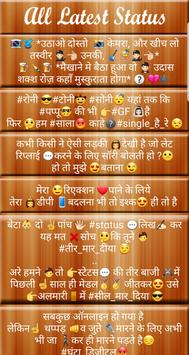 All Latest Status
*उठाओ दोस्तो केमरा, और खीच लो
तस्वीर उनकी,
*मैखाने मे बैठा हुआ वो उदास
शक्श रोज़ कहाँ मुस्कुराता होगा*
#रोनी #टोनी #सोनी यहां तक कि
#पप्पू की भी #GF है
फिर हम #साला काहे #single_है रे
कभी किसी ने ऐसी लड़की देखी है जो लेट
रिप्लाई करने के लिए सॉरी बोलती हो?
हो तो मुझे बताना
मेरा रिएक्शन पाने के लिये
तेरा डीपी बदलना भी तो इश्क ही तो है
बेटा दो पांच #status लिख कर
यह मत सोच कि तूने
#तीर_मार_दीया
..
अरे हमने तो स्टेटस की तीर बाजी में
पिछले साल ही मेडल जीतकर उसे
अलमारी में #सील_मार_दीया
सबकुछ ऑनलाइन हो गया है
लेकिन थप्पड़ और जूते मारने के लिए अभी
भी जाना पड़ता है
#घंटा_डिजीटल